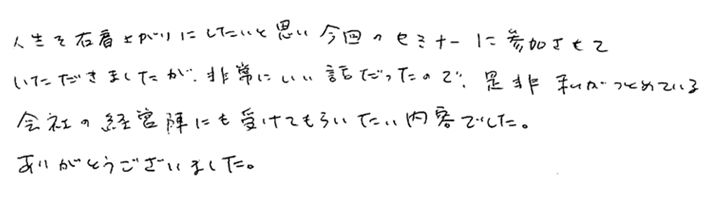 人生を右肩上がりにしたいと思い今回のセミナーに参加させて
いただきましたが、非常にいい話だったので、是非私がつとめている
会社の経営陣にも受けてもらいたい内容でした。
ありがとうございました。